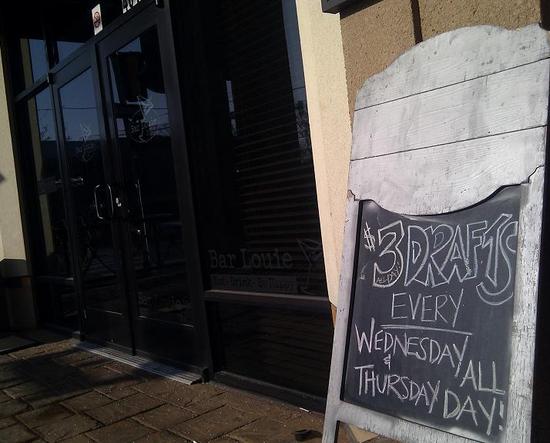 Bar Louie
$3 DRAFTS
ALL DAY
EVERY
WEDNESDAY
&
THURSDAY ALL
DAY!